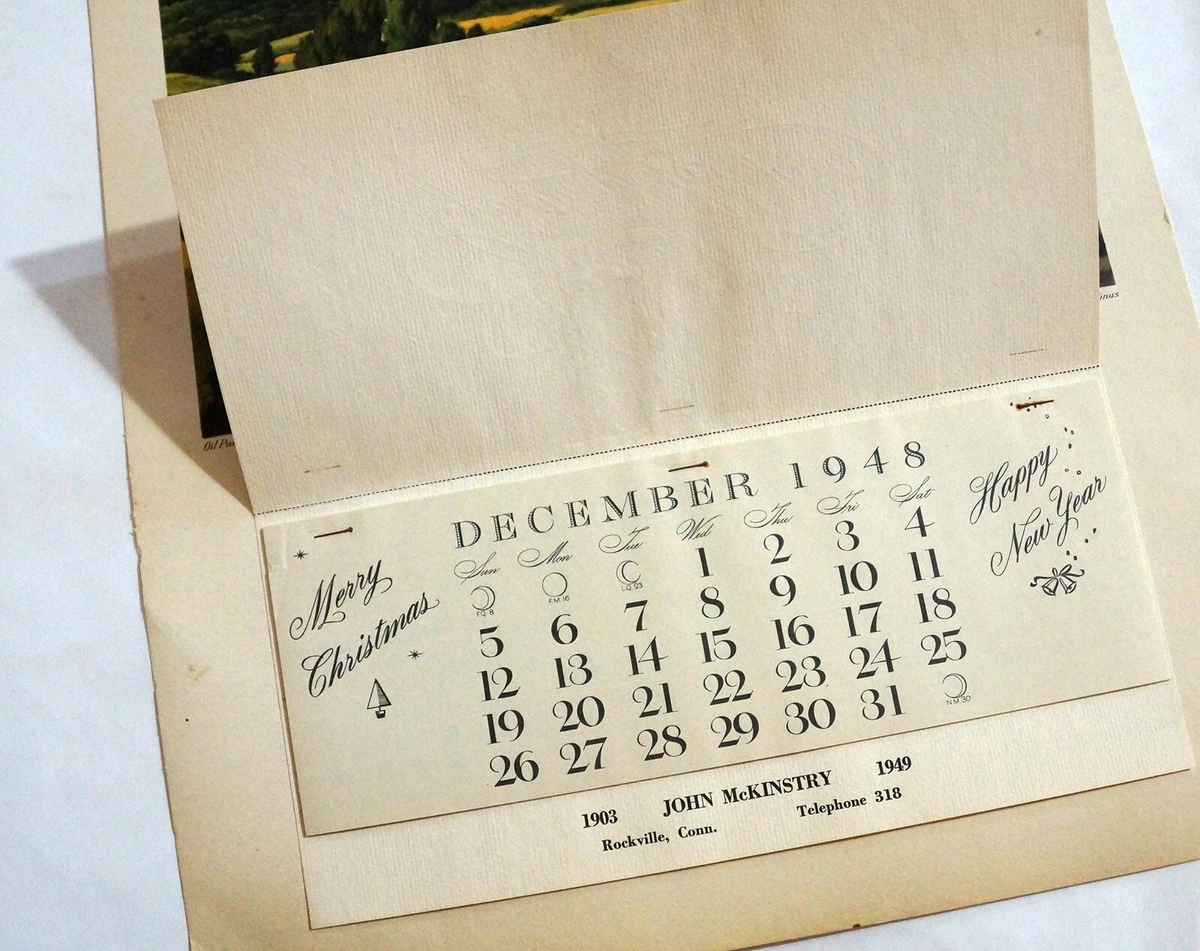 inus
Oil Pai
DECEMBER 1948
Merry
Christmas
Happy
New Year
Sun Mon Tue Wed Thu Fri Sat
F.Q. 8 F.M. 16 L.Q. 23 1 2 3 4
5 6 7 8 9 10 11
12 13 14 15 16 17 18
19 20 21 22 23 24 25
26 27 28 29 30 31 N.M. 30
1903 JOHN McKINSTRY 1949
Rockville, Conn. Telephone 318